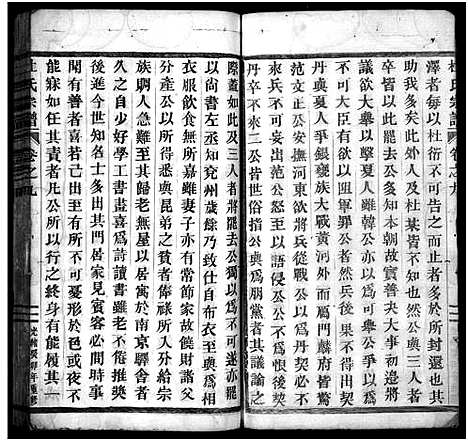 杜氏宗譜 卷之九
澤者每以杜衍不可告之而止者多於所封還也其
助我多矣此外人及杜某皆不知也然公與三人者
卒皆以此罷去公多知本朝故實善決大事初邊將
議欲大舉以擊夏人雖韓公亦以可舉公爭以
不可大臣至有欲以沮軍罪公者然兵後果不得出契
丹與夏人爭銀甕族大戰黃河外而雁門麟府皆警
范公安撫河東欲將兵從戰公以為契丹必不來兵
不可妄出范公怒至以語侵公公不為恨後契
丹卒不來二公皆世俗指公與為朋黨者其議論之
際蓋如此及三人者將罷去公獨以為不可遂亦罷
以尚書左丞知兗州歲餘乃致仕公自布衣至為相
衣服飲食無所加雖妻子亦有常節家故饒財諸父
分產公以所得悉與昆弟之貧者俸祿所入分給宗
族賙人急難至其歸老無屋以居寓於南京驛舍者
久之自少好學工書畫喜為詩讀書雖老不倦推獎
後進今世知名士多出其門居家見賓客必問時事
聞有善者喜若己出至有所不可憂形於色或夜不
能寐如任其責者凡公所以行之終身者有能履其一
杜氏宗譜 卷之九